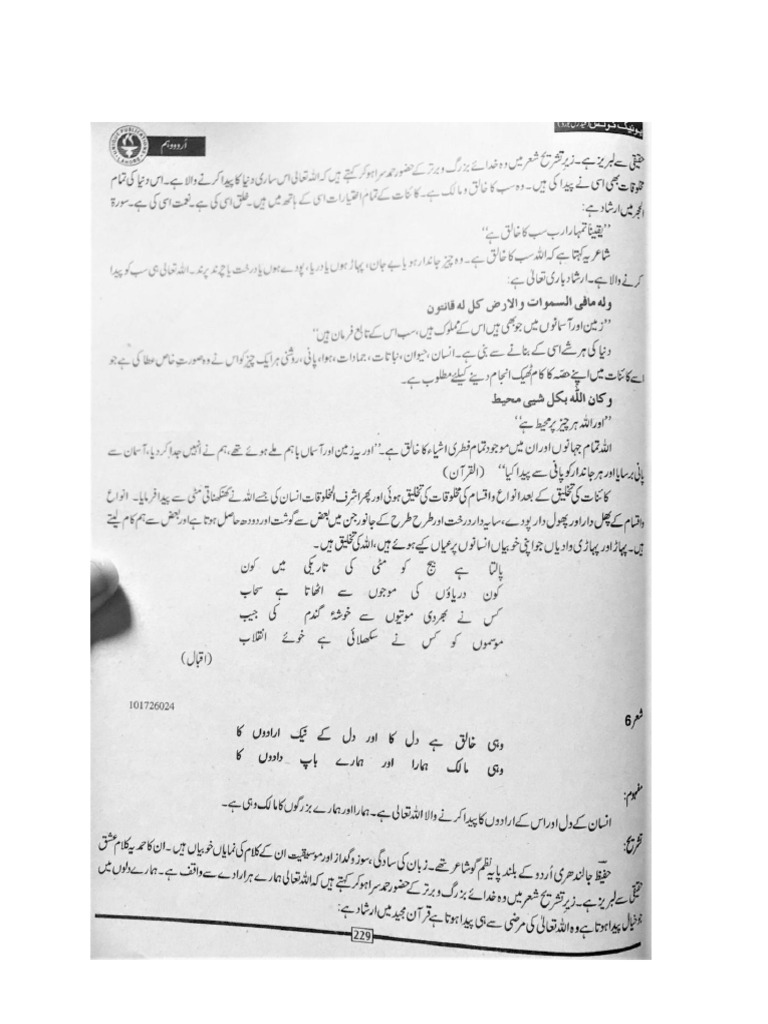 یونیک نوٹس
اُردو دہم
حقیقی سے لبریز ہے۔ زیرِ تشریح شعر میں وہ خدائے بزرگ و برتر کے حضور حمد سرا ہو کر کہتے ہیں کہ اللہ تعالیٰ اس ساری دنیا کا پیدا کرنے والا ہے۔ اس دنیا کی تمام
مخلوقات بھی اسی نے پیدا کی ہیں۔ وہ سب کا خالق و مالک ہے۔ کائنات کے تمام اختیارات اسی کے ہاتھ میں ہیں۔ خلق اسی کی ہے۔ نعمت اسی کی ہے۔ سورۃ
الحجر میں ارشاد ہے:
"یقیناً تمہارا رب سب کا خالق ہے"
شاعر یہ کہتا ہے کہ اللہ سب کا خالق ہے۔ وہ چیز جاندار ہو یا بے جان، پہاڑ ہوں یا دریا، پودے ہوں یا درخت یا چرند پرند۔ اللہ تعالیٰ ہی سب کو پیدا
کرنے والا ہے۔ ارشاد باری تعالیٰ ہے:
وله مافی السموات والارض کل له قانتون
"زمین اور آسمانوں میں جو بھی ہیں اس کے مملوک ہیں، سب اس کے تابع فرمان ہیں"
دنیا کی ہر شے اسی کے بنانے سے بنی ہے۔ انسان، حیوان، نباتات، جمادات، ہوا، پانی، روشنی ہر ایک چیز کو اس نے وہ صورتِ خاص عطا کی ہے جو
اسے کائنات میں اپنے حصہ کا کام ٹھیک انجام دینے کیلئے مطلوب ہے۔
وکان اللّٰه بکل شیی محیط
"اور اللہ ہر چیز پر محیط ہے"
اللہ تمام جہانوں اور ان میں موجود تمام فطری اشیاء کا خالق ہے۔ "اور یہ زمین اور آسماں باہم ملے ہوئے تھے، ہم نے انہیں جدا کر دیا، آسمان سے
پانی برسایا اور ہر جاندار کو پانی سے پیدا کیا" (القرآن)
کائنات کی تخلیق کے بعد انواع و اقسام کی مخلوقات کی تخلیق ہوئی اور پھر اشرف المخلوقات انسان کی جسے اللہ نے کھنکھناتی مٹی سے پیدا فرمایا۔ انواع
و اقسام کے پھل دار اور پھول دار پودے، سایہ دار درخت اور طرح طرح کے جانور جن میں بعض سے گوشت اور دودھ حاصل ہوتا ہے اور بعض سے ہم کام لیتے
ہیں۔ پہاڑ اور پہاڑی وادیاں جو اپنی خوبیاں انسانوں پر عیاں کیے ہوئے ہیں، اللہ کی تخلیق ہیں۔
پالتا ہے بیج کو مٹی کی تاریکی میں کون
کون دریاؤں کی موجوں سے اٹھاتا ہے سحاب
کس نے بھر دی موتیوں سے خوشۂ گندم کی جیب
موسموں کو کس نے سکھلائی ہے خوئے انقلاب
(اقبال)
101726024
شعر 6
وہی خالق ہے دل کا اور دل کے نیک ارادوں کا
وہی مالک ہمارا اور ہمارے باپ دادوں کا
مفہوم:
انسان کے دل اور اس کے ارادوں کا پیدا کرنے والا اللہ تعالیٰ ہے۔ ہمارا اور ہمارے بزرگوں کا مالک وہی ہے۔
تشریح:
حفیظؔ جالندھری اُردو کے بلند پایہ نظم گو شاعر تھے۔ زبان کی سادگی، سوز و گداز اور موسیقیت ان کے کلام کی نمایاں خوبیاں ہیں۔ ان کا حمدیہ کلام عشق
حقیقی سے لبریز ہے۔ زیرِ تشریح شعر میں وہ خدائے بزرگ و برتر کے حضور حمد سرا ہو کر کہتے ہیں کہ اللہ تعالیٰ ہمارے ہر ارادے سے واقف ہے۔ ہمارے دلوں میں
جو خیال پیدا ہوتا ہے وہ اللہ تعالیٰ کی مرضی سے ہی پیدا ہوتا ہے قرآن مجید میں ارشاد ہے:
229